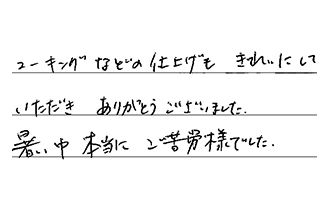 コーキングなどの仕上げも きれいにして
いただき ありがとうございました.
暑い中 本当に ご苦労様でした.